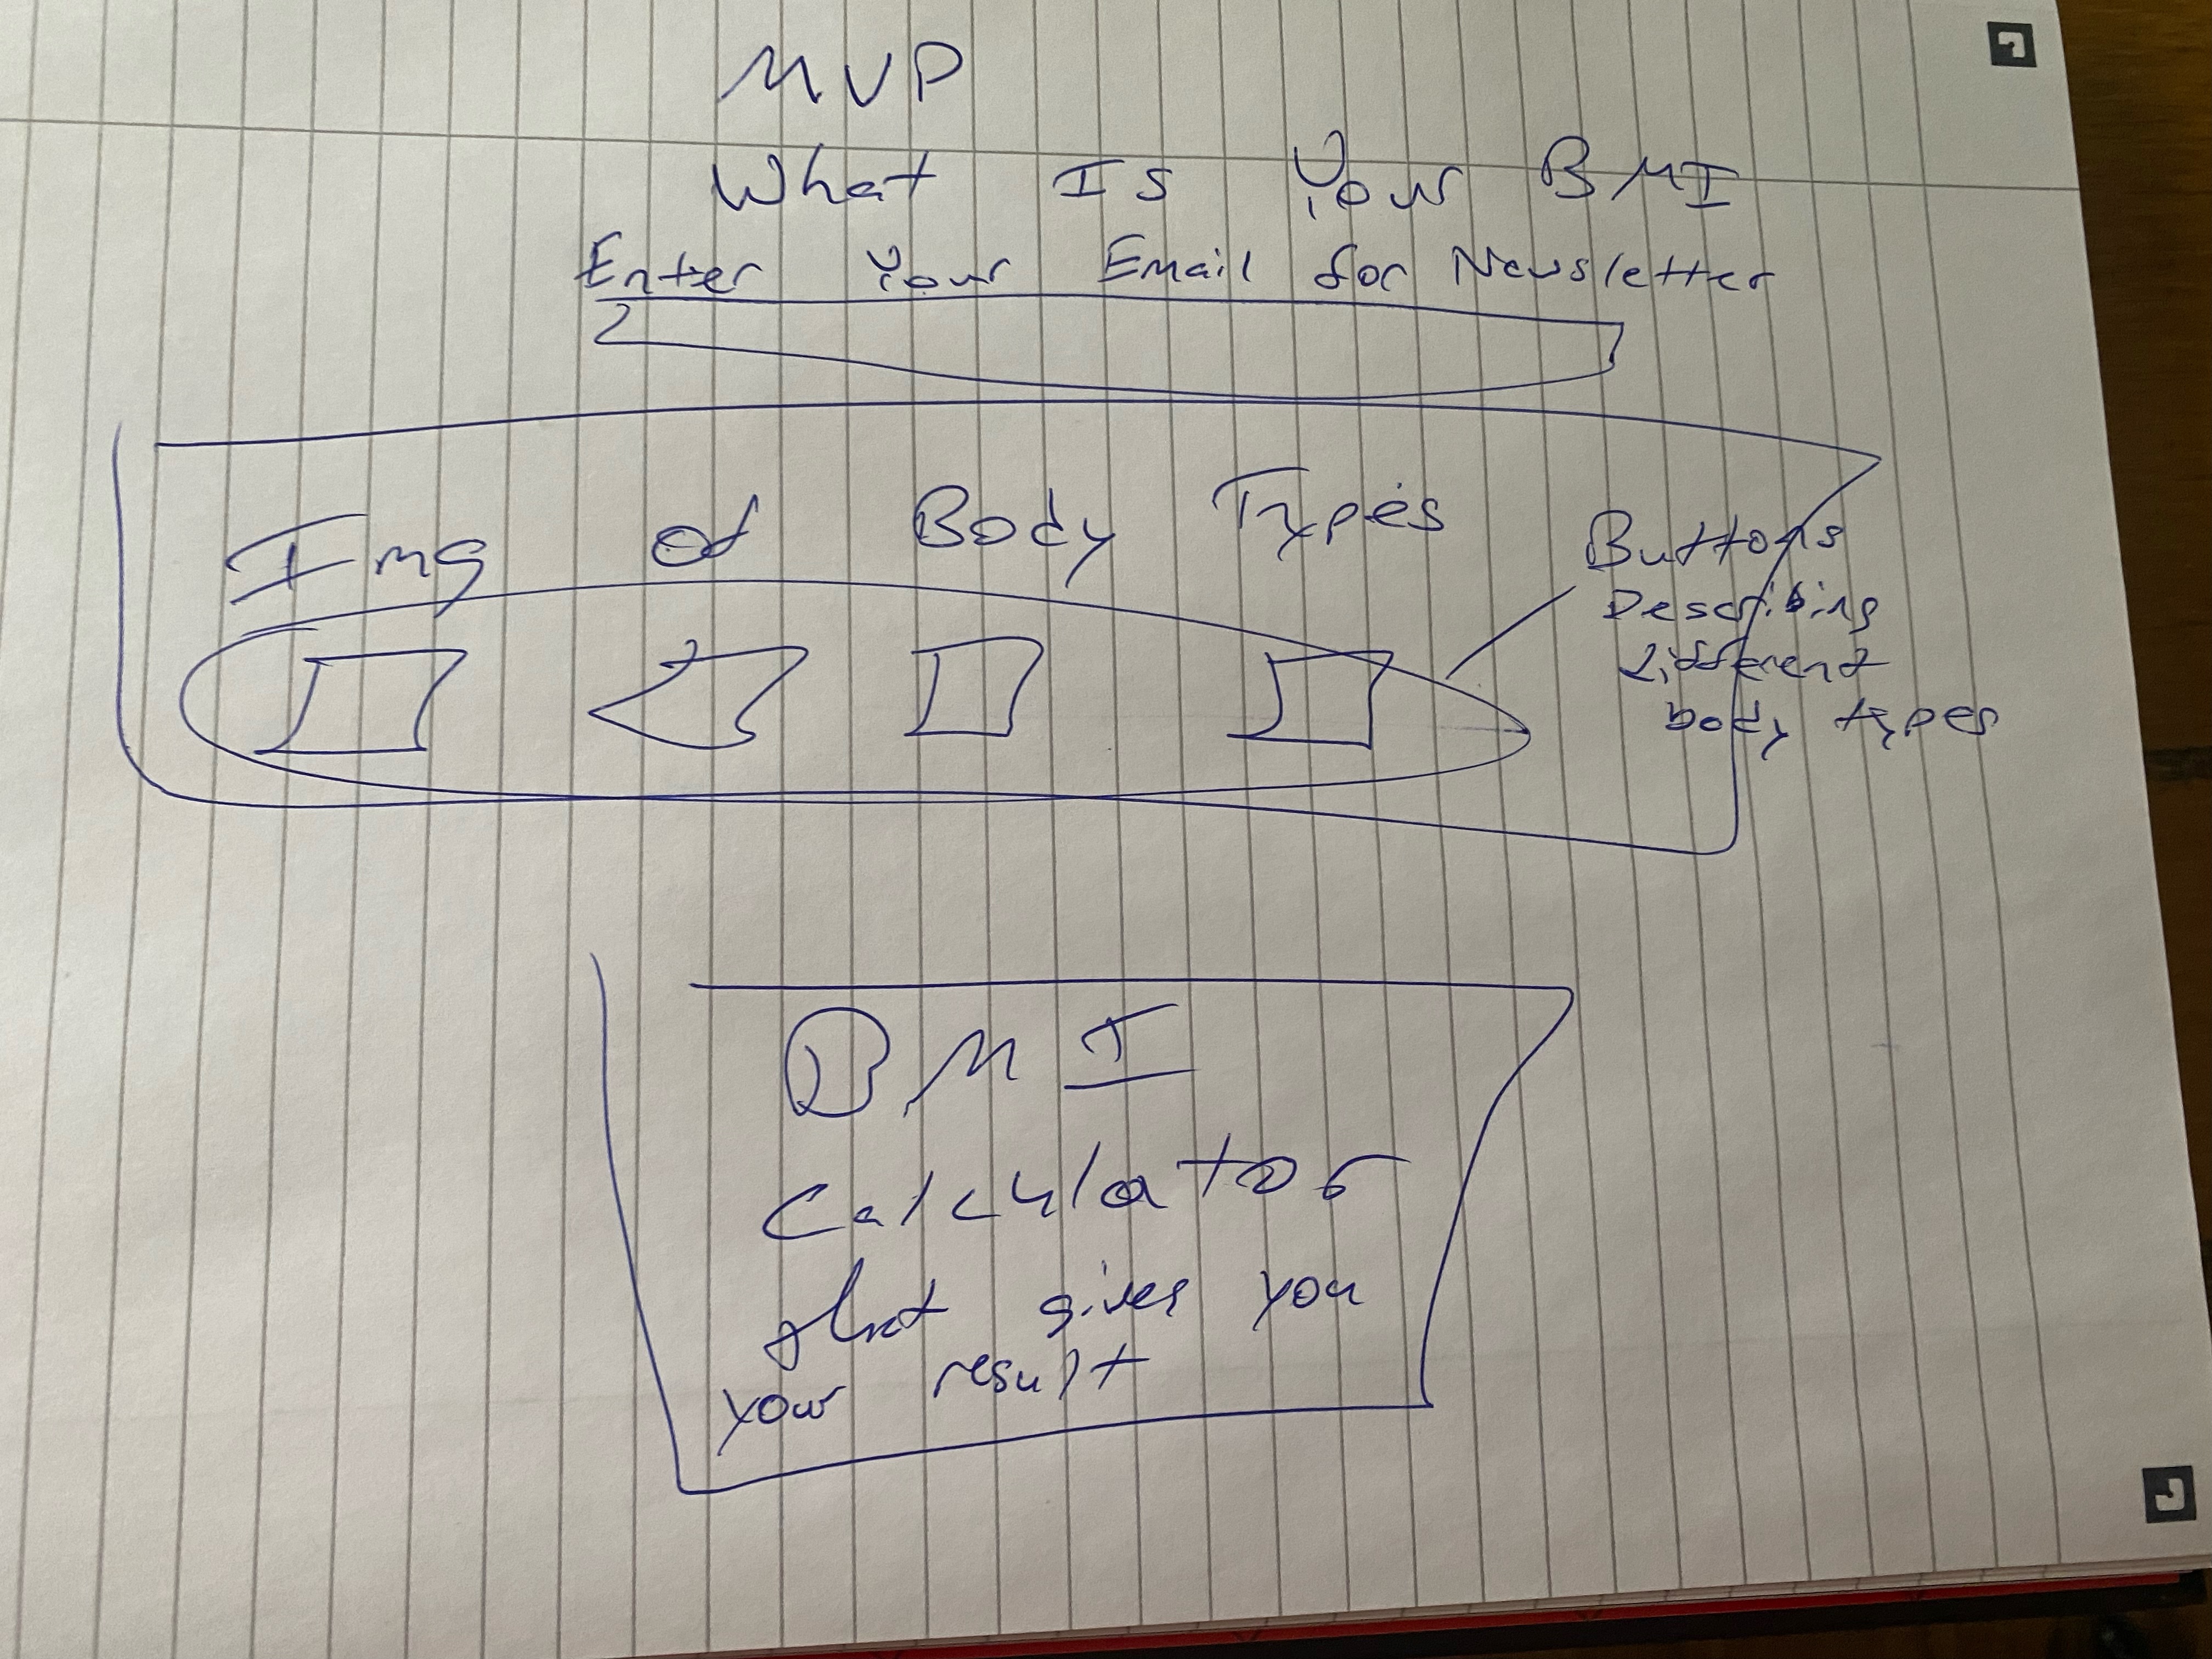 MVP
What Is Your BMI
Enter Your Email for Newsletter
Img of Body Types
Buttons
Describing
different
body types
BMI
Calculator
that gives you
your result